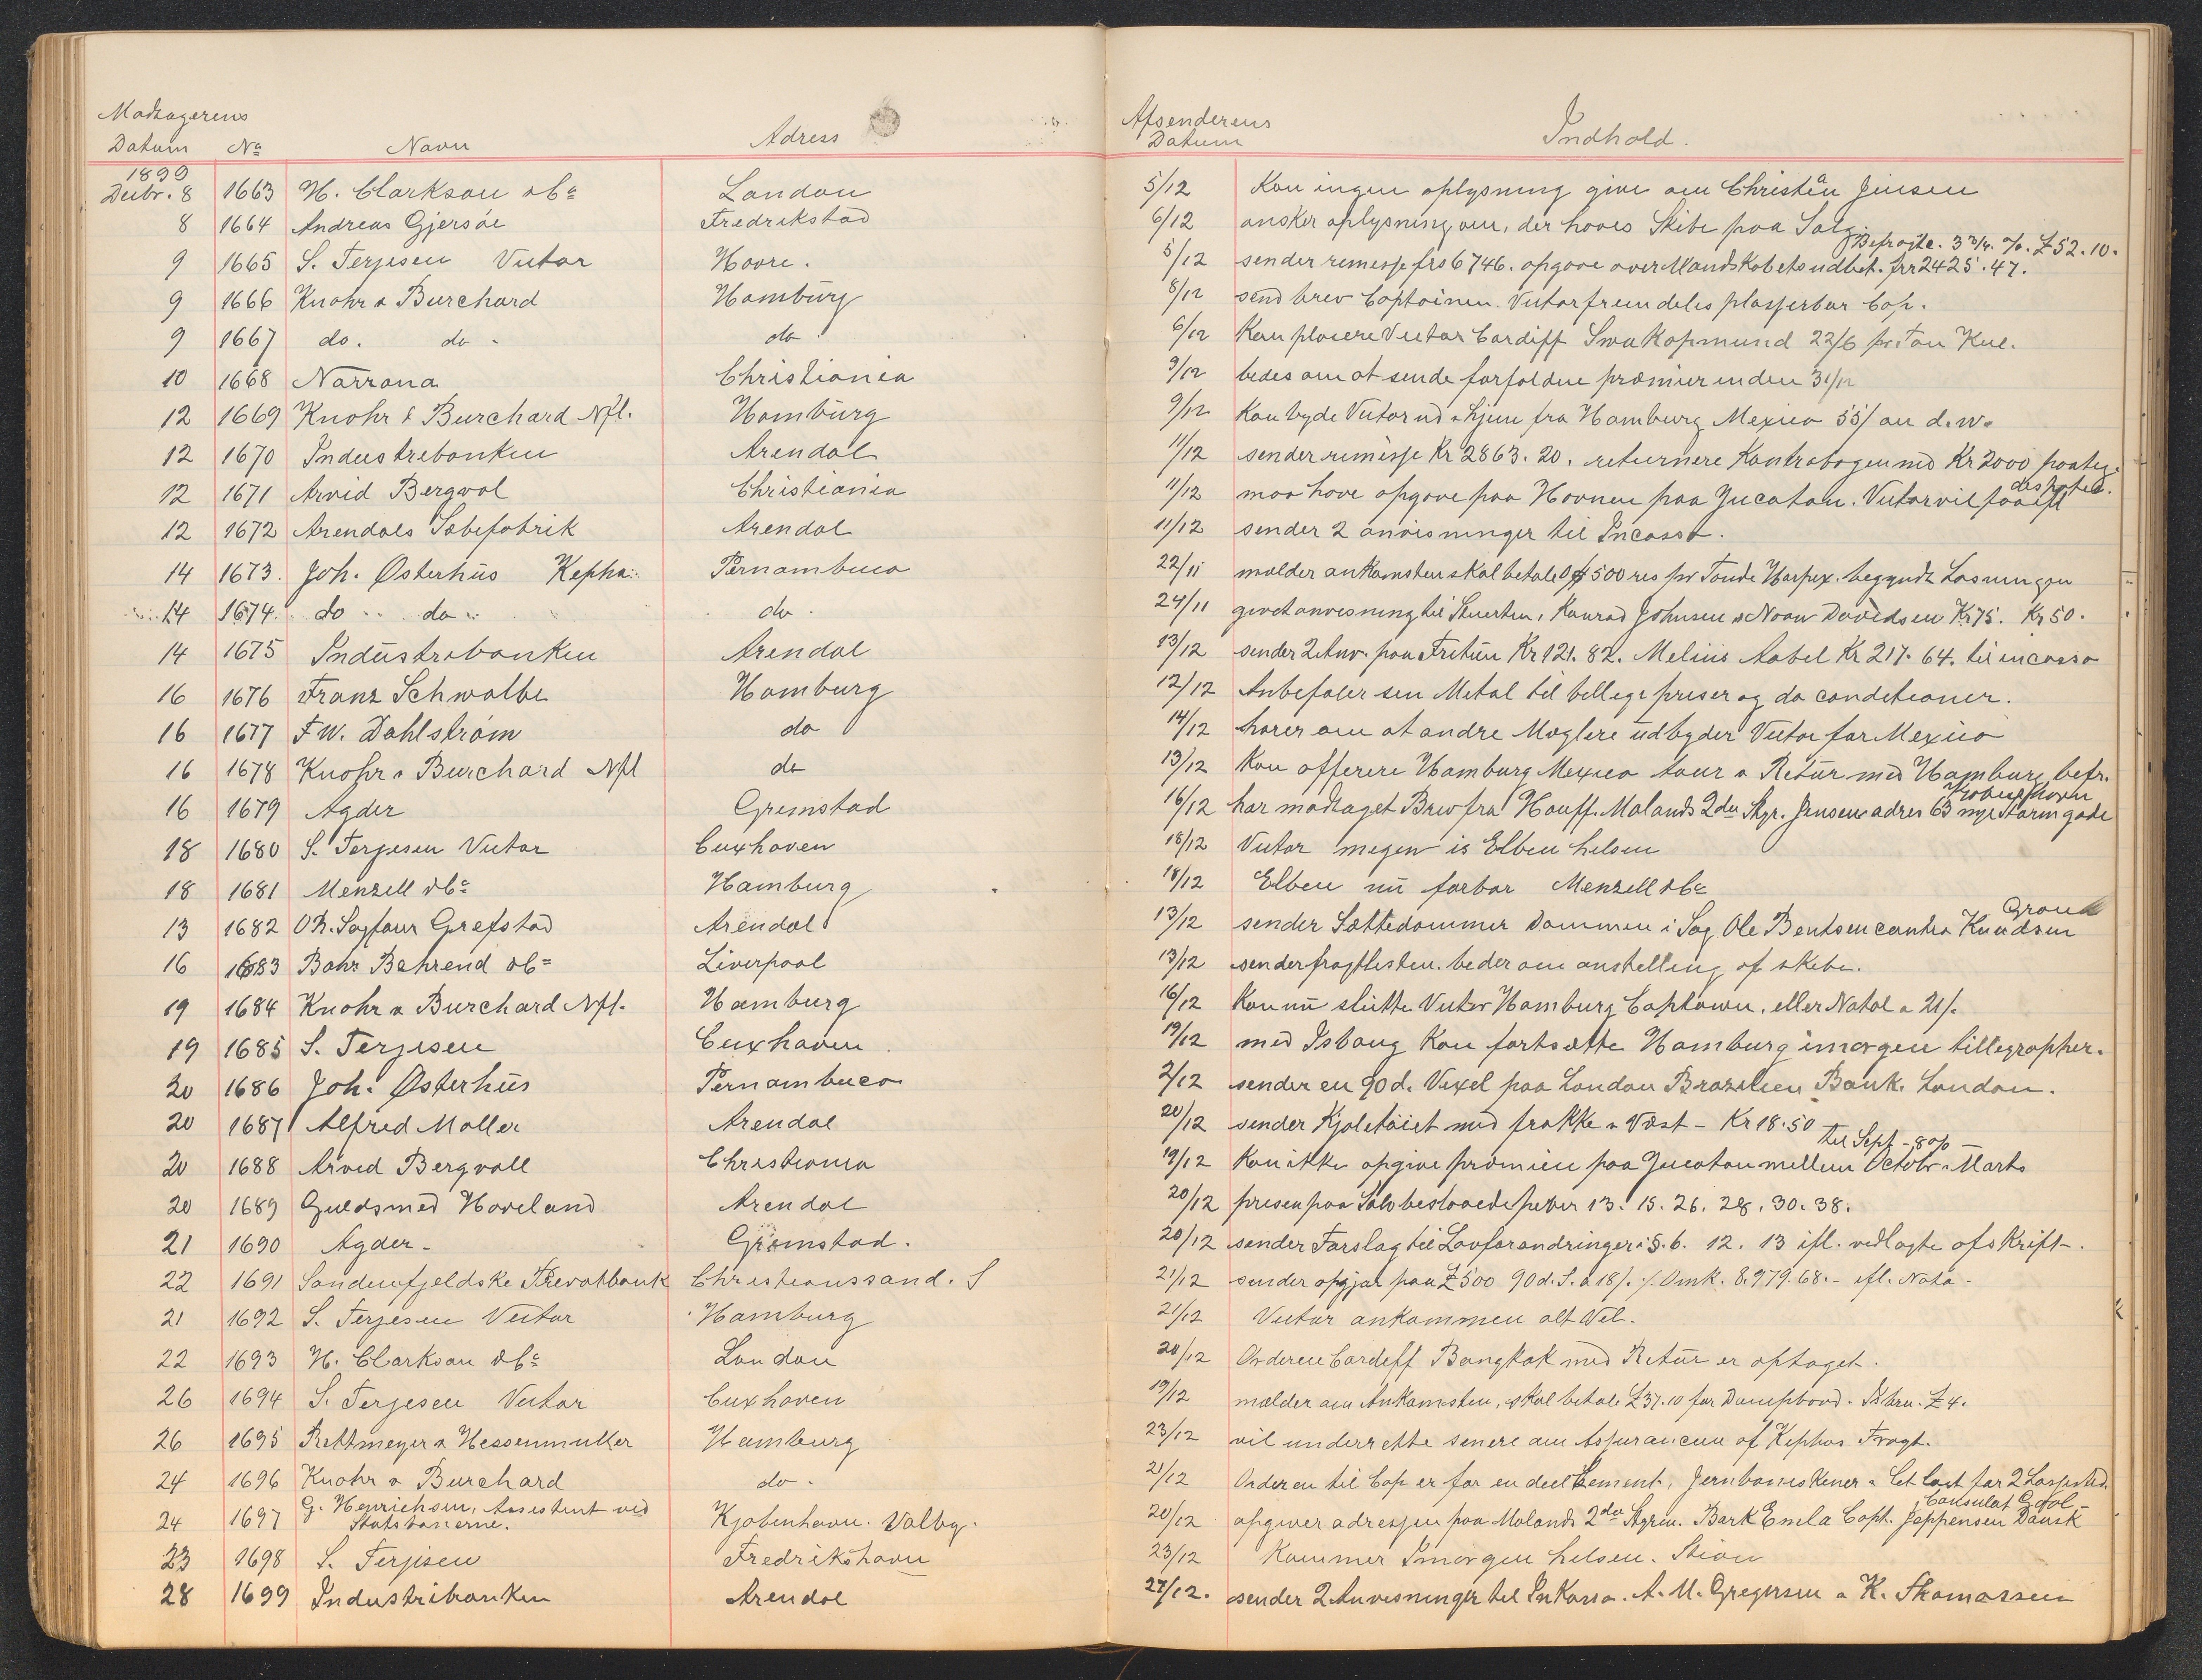 Modtagerens
Datum No Navn Adress
1899
Decbr. 8 1663 H. Clarkson & Co London
8 1664 Andreas Gjersöe Fredrikstad
9 1665 S. Terjesen Victor Havre.
9 1666 Knohr & Burchard Hamburg
9 1667 do. do. do
10 1668 Norrona Christiania
12 1669 Knohr & Burchard Nfl. Hamburg
12 1670 Industribanken Arendal
12 1671 Arvid Bergvol Christiania
12 1672 Arendals Sæbefabrik Arendal
14 1673. Joh. Østerhus Kepha. Pernambuco
14 1674. do do do.
14 1675 Industribanken Arendal
16 1676 Franz Schwalbe Hamburg
16 1677 F W. Dahlström do
16 1678 Knohr & Burchard Nfl do
16 1679 Agder Grimstad
18 1680 S. Terjesen Victor Cuxhaven
18 1681 Menzell & Co Hamburg
13 1682 O.R. Sagfører Grefstad Arendal
16 1683 Bahr Behrend & Co Liverpool
19 1684 Knohr & Burchard Nfl. Hamburg
19 1685 S. Terjesen Cuxhaven
20 1686 Joh. Østerhus Pernambuco
20 1687 Alfred Møller Arendal
20 1688 Arvid Bergvall Christiania
20 1689 Guldsmed Hoveland Arendal
21 1690 Agder Grimstad.
22 1691 Søndenfjeldske Privatbank Christianssand. S
21 1692 S. Terjesen Victor Hamburg
22 1693 H. Clarkson & Co London
26 1694 S. Terjesen Victor Cuxhaven
26 1695 Rettmeyer & Hessenmuller Hamburg
24 1696 Knohr & Burchard do.
24 1697 G. Henrichsen, Assistent ved
Statsbanerne. Kjøbenhavn. Valby.
23 1698 S. Terjesen Fredrikshavn
28 1699 Industribanken Arendal
Afsenderens
Datum Indhold.
5/12 Kan ingen oplysning give om Christen Jensen
6/12 ønsker oplysning om, der haves Skibe paa Salg
Befragte. 3 3/4. %. £52.10.
5/12 sender remesse frs 6746. opgave over Mandskabets udbet. frs 2425.47.
8/12 send brev Captainen. Victor fremdeles plasserbar Cap.
6/12 Kan placere Victor Cardiff Swakopmund 22/6 pr. Ton Kul.
9/12 bedes om at sende forfaldne præmier inden 31/12
9/12 Kan byde Victor ud & hjem fra Hamburg Mexico 55/ on d.w.
11/12 sender remesse Kr 2863.20. returnere Kontrabogen med Kr 2000 paateg.
11/12 maa have opgave paa Havnen paa Yucatan. Victor vil faa
11/12 sender 2 anvisninger til Incasso.
22/11 melder ankomsten skal betale 500 res pr Tønde Harpex. begyndt Losningen
24/11 givet anvisning til Stuerten, Konrad Johnsen & Noan Davidsen Kr 75. Kr 50.
13/12 sender 2 Anv. paa Fretun Kr 121.82. Melius Aabel Kr 217.64. til incasso
12/12 Anbefaler sin Metal til billige priser og do conditioner.
14/12 hører om at andre Mæglere udbyder Victor for Mexico
13/12 Kan offerere Hamburg Mexico tour & Retur med Hamburg befr.
16/12 har modtaget Brev fra Hauff. Molands 2den Styr. Jensens adres 63 nye Farimgade
Kjøbenhavn
18/12 Victor megen is Elben hilsen
18/12 Elben nu farbar Menzell & Co
13/12 sender Sættedommer Dommen i Sag. Ole Bentsen contra Knudsen
13/12 sender fragtlisten. beder om anstelling af skibe.
16/12 Kan nu slutte Victor Hamburg Captown, eller Natal a 21/.
19/12 med Isbaug Kan fortsætte Hamburg imorgen tillegrapher.
2/12 sender en 90 d. Vexel paa London Brazilien Bank. London.
20/12 sender Kjoletøiet med frakke & Vest - Kr 18.50
til Sept - 8%
19/12 Kan ikke opgive præmien paa Yucatan mellem Octobr & Marts
20/12 prisen paa Sølvbeslaaede piber 13. 15. 26. 28. 30. 38.
20/12 sender Forslag til Lovforandringer i §. 6. 12. 13 ifl. vedlagte afskrift.
21/12 sender opgjør paa £500 90 d. S. a 18/. 8.979.68. - ifl. Nota -
21/12 Victor ankommen alt Vel.
20/12 Orderen Cardiff Bangkok med Retur er optaget.
19/12 melder om Ankomsten, skal betale £37.10 for Dampbaad. £4.
23/12 vil underrette senere om Assurancen af Kephas Fragt.
21/12 Orderen til Cap er for en deel Cement, Jernbaneskener & let Last for 2 Lossested.
Consulat
20/12 opgiver adressen paa Molands 2den Styrm. Bark Emla Capt. Jeppensen Dansk
23/12 Kommer Imorgen hilsen.
27/12. sender 2 Anvisninger til Inkasso. A. M. Gregersen & K. Thomassen